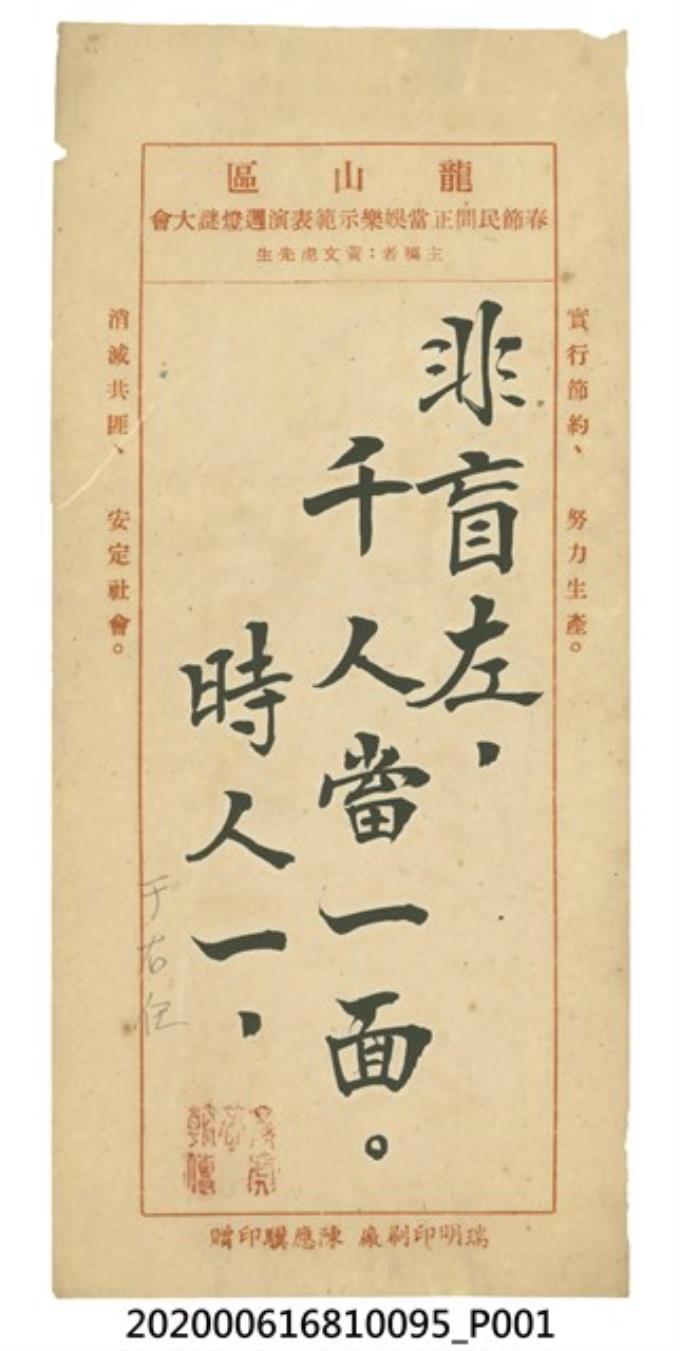 龍山區
春節民間正當娛樂示範表演週燈謎大會
主稿者：黃文虎先生
實行節約、 努力生產。
非盲左，
千人當一面。
時人一，
消滅共匪、 安定社會。
于右任
瑞明印刷廠 陳應驥印贈
202000616810095_P001